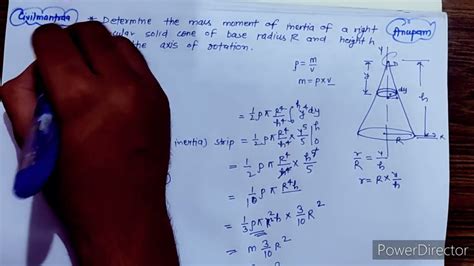 Civilmantra
* Determine the mass moment of inertia of a right
cular solid cone of base radius R and height h
the axis of rotation.
Anupam
ρ = m/v
m = ρ x v
= 1/2 ρ π R⁴/h⁴ ∫₀ʰ y⁴ dy
inertia) strip = 1/2 ρ π R⁴/h⁴ x y⁵/5 |₀ʰ
= 1/2 ρ π R⁴/h⁴ x h⁵/5
= 1/10 ρ π R⁴h
= 1/3 ρ π R²h x 3/10 R²
= m 3/10 R²
y
dy
h
R
x
r/R = y/h
r = R x y/h
PowerDirector